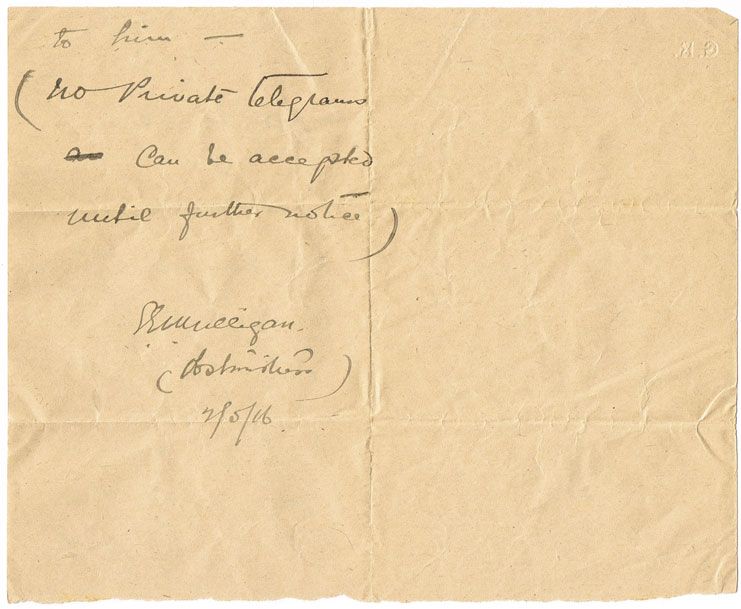 to him —
(No Private Telegrams
can be accepted
until further notice)
Mulligan.
(Postmistress)
2/5/16
G.R.